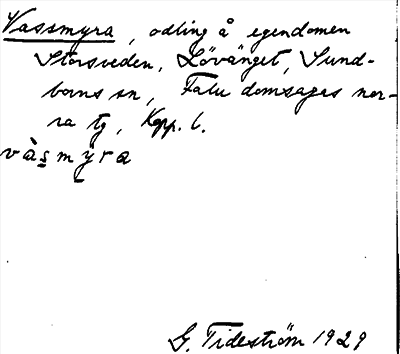 Vassmyra, odling å egendomen
Storsveden, Lövänget, Sund-
borns sn, Falu domsagas nor-
ra tg, Kopp. l.
vàs̲my̲ra
G. Tideström 1929